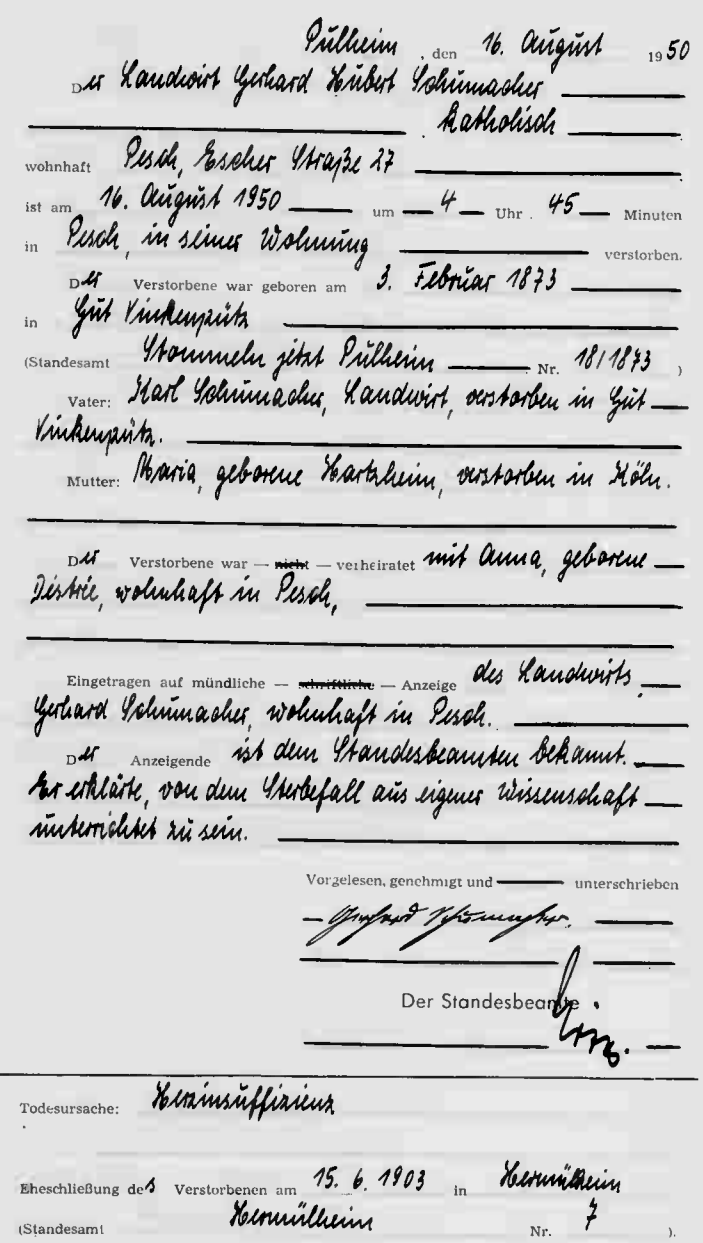 Pulheim, den 16. August 1950
Der Landwirt Gerhard Hubert Schumacher
katholisch
wohnhaft Pesch, Escher Straße 27
ist am 16. August 1950 um 4 Uhr 45 Minuten
in Pesch, in seiner Wohnung verstorben.
Der Verstorbene war geboren am 3. Februar 1873
in Gut Vinkenpütz
(Standesamt Stommeln jetzt Pulheim Nr. 18/1873 )
Vater: Karl Schumacher, Landwirt, verstorben in Gut
Vinkenpütz.
Mutter: Maria, geborene Hartzheim, verstorben in Köln.
Der Verstorbene war — nicht — verheiratet mit Anna, geborene
Distrée, wohnhaft in Pesch,
Eingetragen auf mündliche — schriftliche — Anzeige des Landwirts
Gerhard Schumacher, wohnhaft in Pesch.
Der Anzeigende ist dem Standesbeamten bekannt.
Er erklärte, von dem Sterbefall aus eigener Wissenschaft
unterrichtet zu sein.
Vorgelesen, genehmigt und unterschrieben
Gerhard Schumacher.
Der Standesbeamte
Todesursache: Herzinsuffizienz
Eheschließung des Verstorbenen am 15. 6. 1903 in Hermülheim
(Standesamt Hermülheim Nr. 7 ).